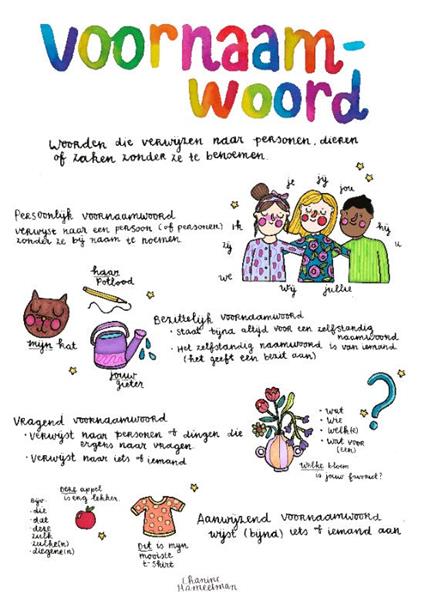 Voornaam-
woord
Woorden die verwijzen naar personen, dieren
of zaken zonder ze te benoemen.
Persoonlijk voornaamwoord
verwijst naar een persoon (of personen)
zonder ze bij naam te noemen
je
jij
jou
ik
hij
zij
u
we
wij
jullie
haar
Potlood
mijn kat
jouw
gieter
Bezittelijk voornaamwoord
• Staat bijna altijd voor een zelfstandig
naamwoord
• Het zelfstandig naamwoord is van iemand
(het geeft een bezit aan)
Vragend voornaamwoord
• Verwijst naar personen & dingen die
ergens naar vragen.
• Verwijst naar iets & iemand
• wat
• wie
• welk(e)
• wat voor
(een)
Welke bloem
is jouw favoriet?
Deze appel
is erg lekker.
Bijv.
• die
• dat
• deze
zulk
zulke(n)
• diegene(n)
Dit is mijn
mooiste
t-shirt
Aanwijzend voornaamwoord
wijst (bijna) iets & iemand aan
Chanine
Hameetman